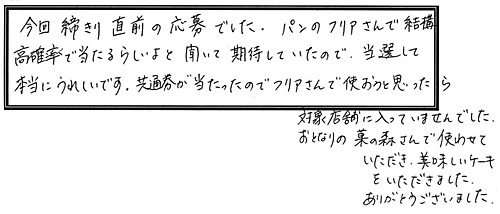 今回 締きり 直前の応募でした. パンのフリアさんで結構
高確率で当たるらしいよと 聞いて 期待していたので. 当選して
本当にうれしいです. 共通券が当たったのでフリアさんで使おうと思ったら
対象店舗に入っていませんでした.
おとなりの 菓の森さんで使わせて
いただき. 美味しいケーキ
をいただきました.
ありがとうございました.